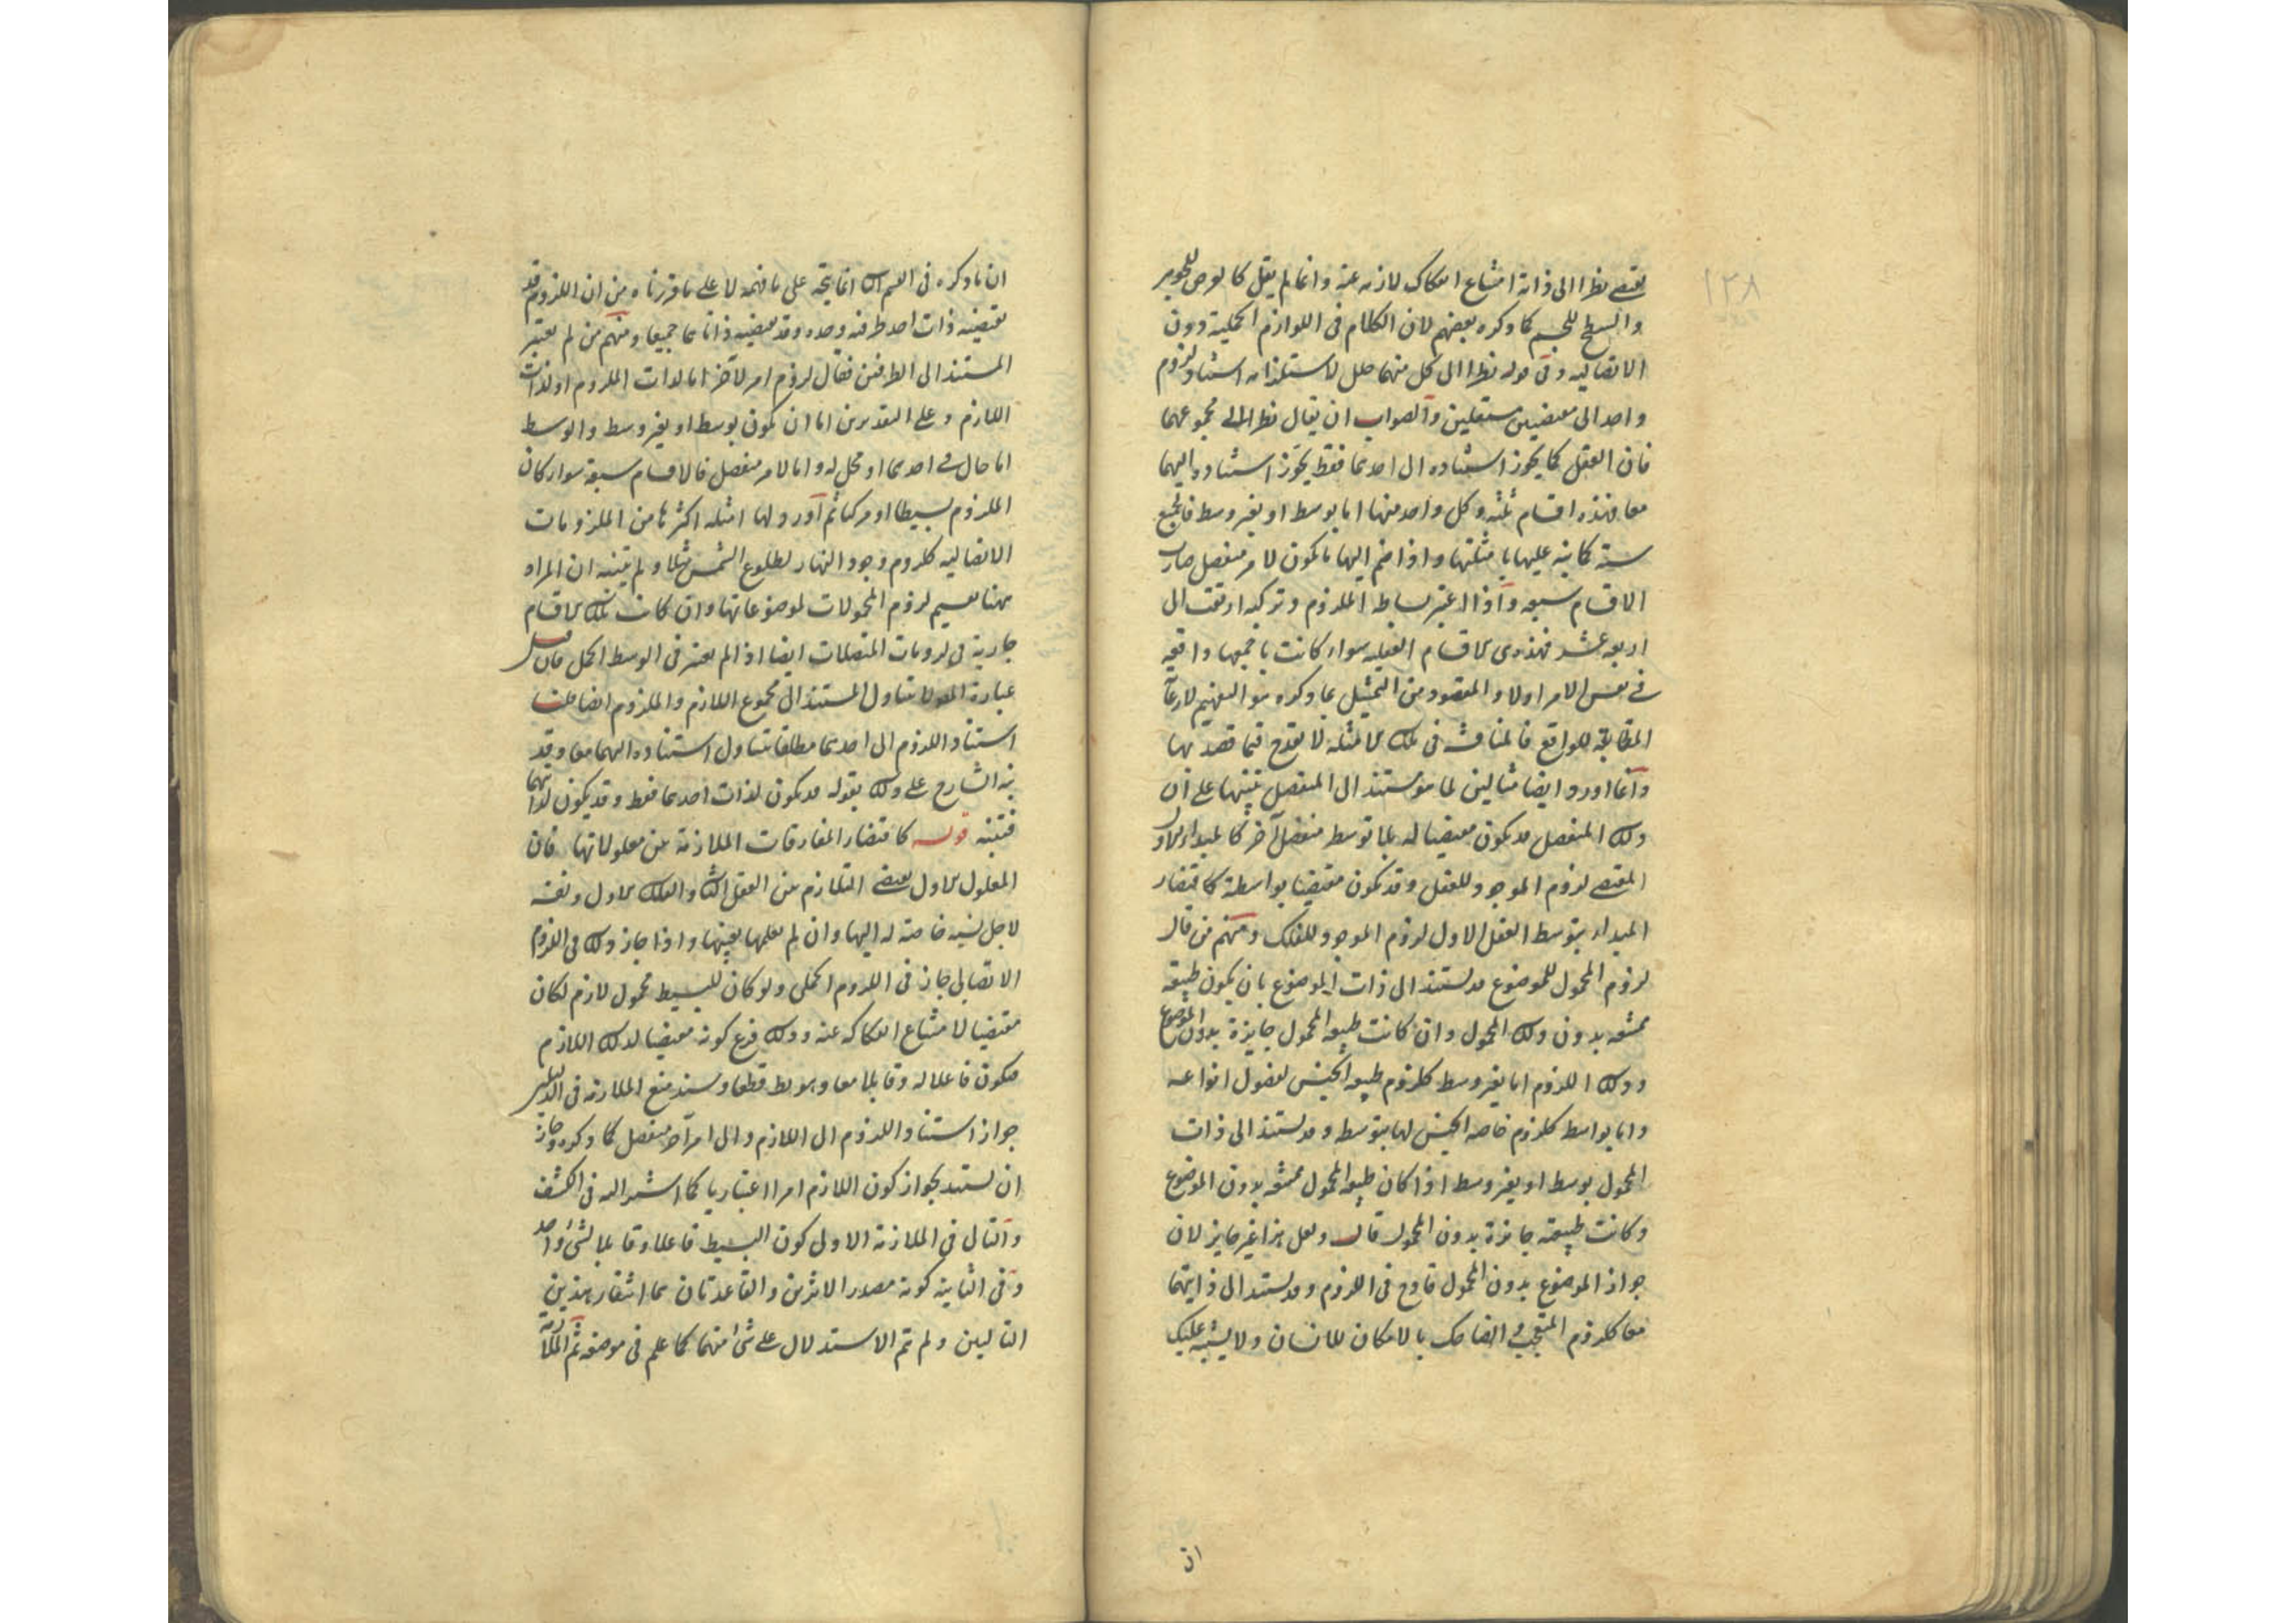 ١٢٨
يقتضى نظرا الى ذاته امتناع انفكاك لازمه عنه وانما لم يقل كالعرض للجوهر
والسطح للجسم كما ذكره بعضهم لان الكلام فى اللوازم الحملية دون
الاتصالية وفى قوله نظرا الى كل منهما خلل لاستلزامه استناد لزوم
واحد الى مقتضيين مستقلين والصواب ان يقال نظرا الى مجموعهما
فان العقل كما يجوز استناده الى احدهما فقط يجوز استناده اليهما
معا فهذه اقسام ثلثة وكل واحد منها اما بوسط او بغير وسط فالجميع
ستة كما نبه عليها بامثلتها واذا ضم اليها ما يكون لامر منفصل صارت
الاقسام سبعة واذا اعتبر بساطة الملزوم وتركبه ارتقت الى
اربعة عشر فهذه هى الاقسام العقلية سواء كانت باجمعها واقعة
فى نفس الامر اولا والمقصود من التمثيل بما ذكره هو التفهيم لا رعاية
المطابقة للواقع فالمناقشة فى تلك الامثلة لا تقدح فيما قصد بها
وانما اورد ايضا مثالين لما هو مستند الى المنفصل تنبيها على ان
ذلك المنفصل قد يكون مقتضيا له بلا توسط منفصل آخر كالمبدا الاول
المقتضى لزوم الموجود للعقل وقد يكون مقتضيا بواسطة كاقتضاء
المبداء بتوسط العقل الاول لزوم الموجود للفلك ومنهم من قال
لزوم المحمول للموضوع قد يستند الى ذات الموضوع بان يكون طبيعته
ممتنعة بدون ذلك المحمول وان كانت طبيعة المحمول جايزة بدون الموضوع
وذلك اللزوم اما بغير وسط كلزوم طبيعة الجنس لفصول انواعه
واما بواسط كلزوم خاصة الجنس لها بتوسطه وقد يستند الى ذات
المحمول بوسط او بغير وسط اذا كان طبيعة المحمول ممتنعة بدون الموضوع
وكانت طبيعته جايزة بدون المحمول قال ولعل هذا غير جايز لان
جواز الموضوع بدون المحمول قادح فى اللزوم وقد يستند الى ذاتيهما
معا كلزوم المتعجب الضاحك بالامكان للانسان ولا يشتبه عليك
ان
ان ما ذكره فى القسم الثالث انما يتجه على ما فهمه لا على ما قررناه من ان اللزوم قد
يقتضيه ذات احد طرفيه وحده وقد يقتضيه ذاتاهما جميعا ومنهم من لم يعتبر
المستند الى الطرفين فقال لزوم امر لآخر اما لذات الملزوم او لذات
اللازم وعلى التقديرين اما ان يكون بوسط او بغير وسط والوسط
اما حال فى احدهما او محل له واما لامر منفصل فالاقسام سبعة سواء كان
الملزوم بسيطا او مركبا ثم اورد لها امثلة اكثرها من الملزومات
الاتصالية كلزوم وجود النهار لطلوع الشمس مثلا ولم يتنبه ان المراد
ههنا تقسيم لزوم المحمولات لموضوعاتها وان كانت تلك الاقسام
جارية فى لزومات المتصلات ايضا اذا لم يعتبر فى الوسط الحمل فان قيل
عبارة المص لا تتناول المستند الى مجموع اللازم والملزوم ايضا قلنا
استناد اللزوم الى احدهما مطلقا يتناول استناده اليهما معا وقد
نبه الشارح على ذلك بقوله قد يكون لذات احدهما فقط وقد يكون لذاتيهما
فتنبه قوله كاقتضاء المفارقات الملازمة بين معلولاتها فان
المعلول الاول يقتضى التلازم بين العقل الثانى والفلك الاول ونفسه
لاجل نسبة خاصة له اليها وان لم نعلمها بعينها واذا جاز ذلك فى اللزوم
الاتصالى جاز فى اللزوم الحملى ولو كان للبسيط محمول لازم لكان
مقتضيا لامتناع انفكاكه عنه وذلك فرع كونه مقتضيا لذلك اللازم
فيكون فاعلا له وقابلا معا وهو بط قطعا وسند منع الملازمة فى الدليلين
جواز استناد اللزوم الى اللازم والى امر آخر منفصل كما ذكره وجاز
ان يستند بجواز كون اللازم امرا اعتباريا كما اشير اليه فى الكشف
والتالى فى الملازمة الاولى كون البسيط فاعلا وقابلا لشئ واحد
وفى الثانية كونه مصدر الاثرين والقاعدتان هما انتفاء هذين
التاليين ولم تم الاستدلال على شئ منهما كما علم فى موضعه ثم الملازمة